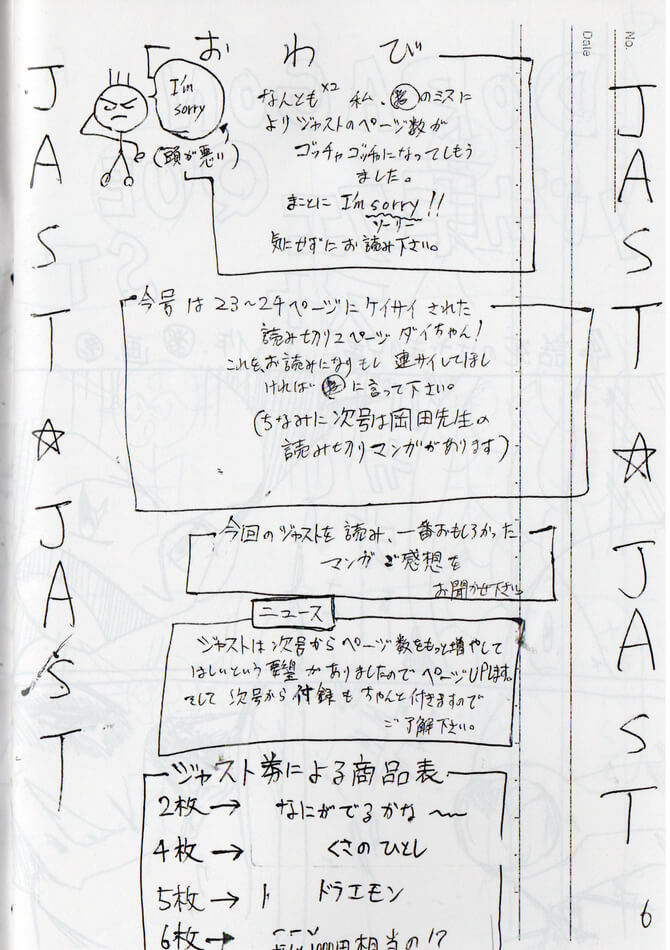 No.
Date
JAST☆JAST
JAST☆JAST
おわび
I'm
sorry
(頭が悪い)
なんとも×2 私、のミスに
よりジャストのページ数が
ゴッチャゴッチャになってしもう
ました。
まことに I'm sorry!!
ソーリー
気にせずにお読み下さい。
今号は23〜24ページにケイサイされた
読み切り2ページ ダイちゃん!
これを、お読みになりもし 連サイしてほし
ければ に言って下さい。
(ちなみに次号は岡田先生の
読み切りマンガがあります)
今回のジャストを読み、一番おもしろかった
マンガご感想を
お聞かせ下さい
ニュース
ジャストは次号からページ数をもっと増やして
ほしいという要望がありましたのでページUPします。
そして次号から付録もちゃんと付きますので
ご了解下さい。
ジャスト券による商品表
2枚→ なにがでるかな〜
4枚→ くさのひとし
5枚→ ドラエモン
6枚→ 相当の
6